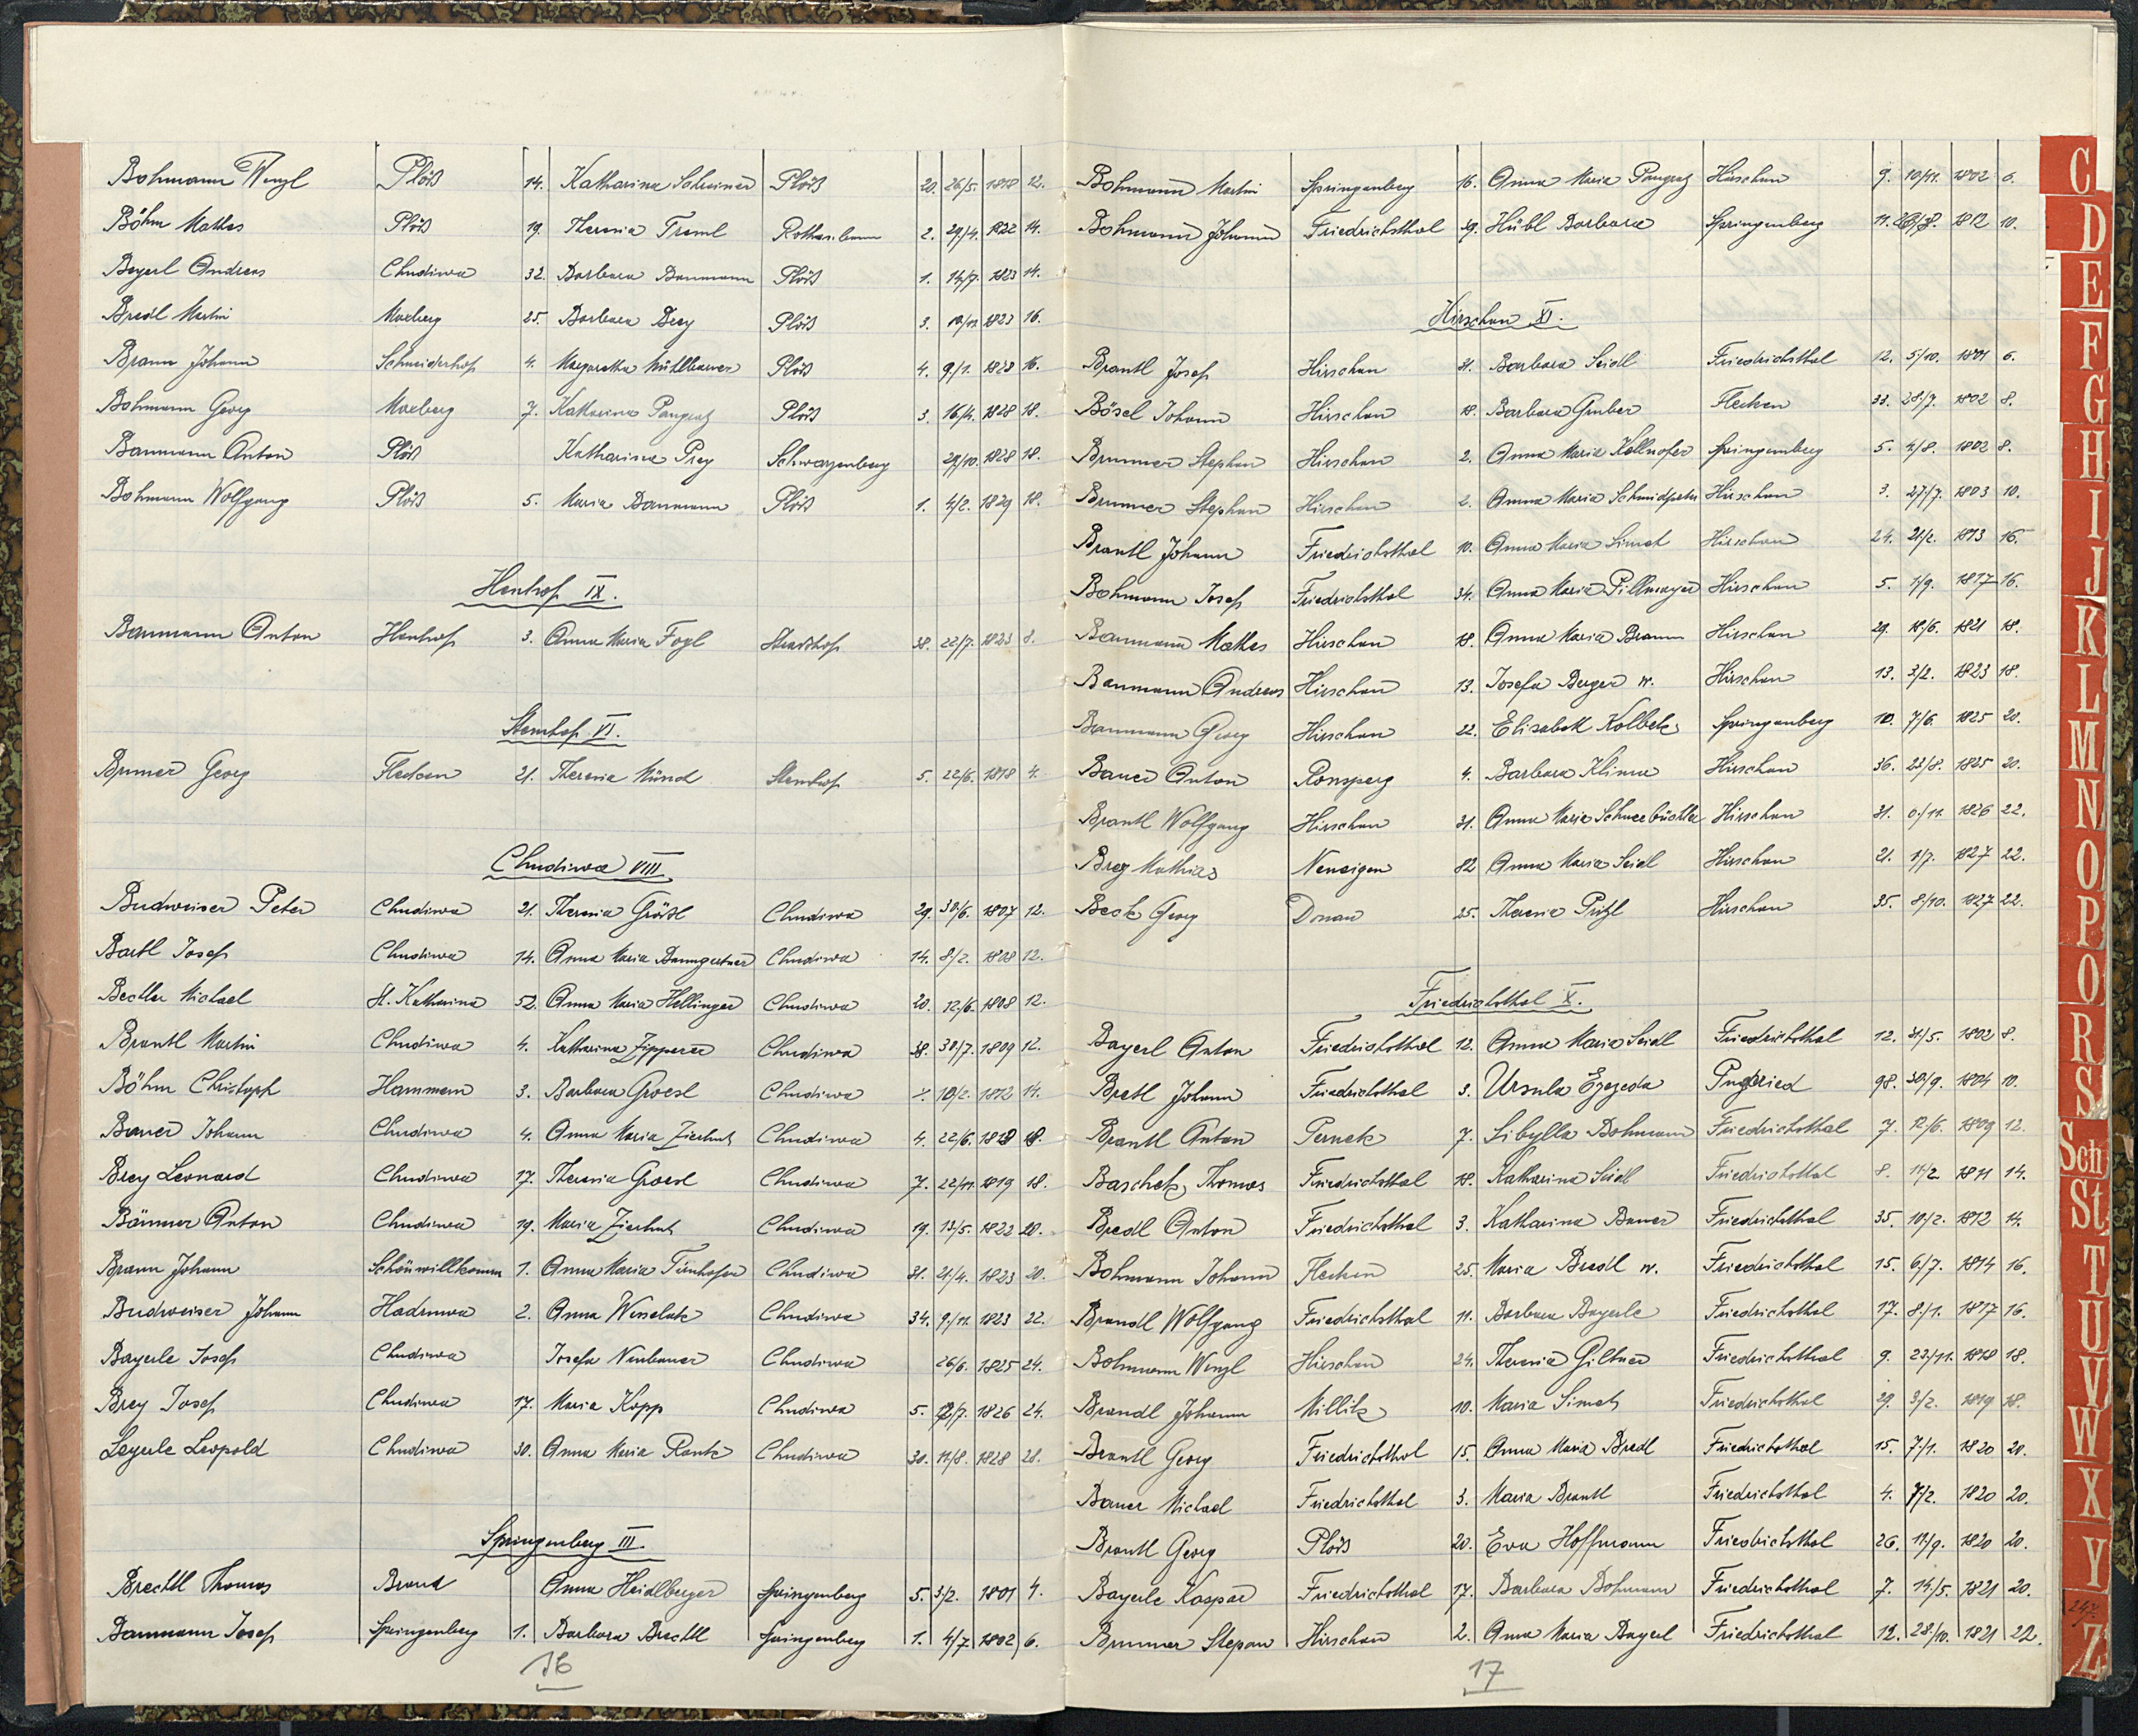 Bohmann Wenzl Plöß 14. Katharina Schreiner Plöß 20. 26/5. 1818 12.
Böhm Mathes Plöß 19. Theresia Treml 2. 29/4. 1822 14.
Beyerl Andreas Chudiwa 32. Barbara Baumann Plöß 1. 14/7. 1823 14.
Bredl Martin Maxberg 25. Barbara Brey Plöß 3. 10/11. 1823 16.
Braun Johann Schneiderhof 4. Margaretha Mühlbauer Plöß 4. 9/1. 1828 16.
Bohmann Georg Maxberg 7. Katharina Pangratz Plöß 3. 16/4. 1828 18.
Baumann Anton Plöß Katharina Prey Schwarzenberg 29/10. 1828 18.
Bohmann Wolfgang Plöß 5. Maria Baumann Plöß 1. 4/2. 1829 18.
Heuhof IX.
Baumann Anton Heuhof 3. Anna Maria Fogl Stadlhof 38. 22/7. 1823 8.
Sternhof VI.
Brunner Georg Flecken 21. Theresia Münd Sternhof 5. 22/6. 1818 4.
Chudiwa VIII.
Budweiser Peter Chudiwa 21. Theresia Größl Chudiwa 29. 30/6. 1807 12.
Bartl Josef Chudiwa 14. Anna Maria Baumgertner Chudiwa 14. 8/2. 1808 12.
Bechtler Michael St. Katharina 52. Anna Maria Hellinger Chudiwa 20. 12/6. 1808 12.
Brantl Martin Chudiwa 4. Katharina Zipperer Chudiwa 38. 30/7. 1809 12.
Böhm Christoph Hammern 3. Barbara Groesl Chudiwa 10/2. 1812 14.
Bauer Johann Chudiwa 4. Anna Maria Zierhut Chudiwa 4. 22/6. 18.
Brey Leonard Chudiwa 17. Theresia Groesl Chudiwa 7. 22/11. 1819 18.
Anton Chudiwa 19. Maria Zierhut Chudiwa 19. 13/5. 1822 20.
Braun Johann Schönwillkomm 1. Anna Maria Chudiwa 31. 21/4. 1823 20.
Budweiser Johann Hadruwa 2. Anna Wesselak Chudiwa 34. 9/11. 1823 22.
Bayerle Josef Chudiwa Josefa Neubauer Chudiwa 26/6. 1825 24.
Brey Josef Chudiwa 17. Maria Kopp Chudiwa 5. 12/7. 1826 24.
Leopold Chudiwa 30. Anna Maria Rank Chudiwa 30. 11/8. 1828 28.
Springenberg III.
Brechtl Thomas Brand Anna Heidlberger Springenberg 5. 3/2. 1801 4.
Baumann Josef Springenberg 1. Barbara Brechtl Springenberg 1. 4/7. 1802 6.
16
Bohmann Martin Springenberg 16. Anna Maria Pangratz Hirschau 9. 10/11. 1802 6.
Bohmann Johann Friedrichsthal 29. Hübl Barbara Springenberg 11. 1812 10.
Hirschau XI.
Brantl Josef Hirschau 31. Barbara Seidl Friedrichsthal 12. 5/10. 1801 6.
Bösel Johann Hirschau 18. Barbara Gruber Flecken 33. 28/7. 1802 8.
Brunner Stephan Hirschau 2. Anna Maria Kollnofer Springenberg 5. 4/8. 1802 8.
Brunner Stephan Hirschau 2. Anna Maria Hirschau 3. 27/7. 1803 10.
Brantl Johann Friedrichsthal 10. Anna Maria Simet Hirschau 24. 21/2. 1813 16.
Bohmann Josef Friedrichsthal 34. Anna Maria Pillmayer Hirschau 5. 1/9. 1817 16.
Baumann Mathes Hirschau 18. Anna Maria Braun Hirschau 29. 18/6. 1821 18.
Baumann Andreas Hirschau 13. Josefa Berger w. Hirschau 13. 3/2. 1823 18.
Baumann Georg Hirschau 22. Elisabeth Kolbek Springenberg 10. 7/6. 1825 20.
Bauer Anton Ronsperg 4. Barbara Klima Hirschau 36. 23/8. 1825 20.
Brantl Wolfgang Hirschau 31. Anna Maria Schneebüchler Hirschau 31. 1826 22.
Brey Mathias Neneigen 82 Anna Maria Seidl Hirschau 21. 1/7. 1827 22.
Beck Georg Donau 25. Theresia Pritzl Hirschau 35. 8/10. 1827 22.
Friedrichsthal X.
Bayerl Anton Friedrichsthal 12. Anna Maria Seidl Friedrichsthal 12. 31/5. 1802 8.
Bretl Johann Friedrichsthal 3. Ursula 98. 30/9. 1804 10.
Brantl Anton Ternek 7. Sibylla Bohmann Friedrichsthal 7. 12/6. 1809 12.
Baschek Thomas Friedrichsthal 18. Katharina Seidl Friedrichsthal 8. 11/2. 1811 14.
Bredl Anton Friedrichsthal 3. Katharina Bauer Friedrichsthal 35. 10/2. 1812 14.
Bohmann Johann Flecken 25. Maria Bredl w. Friedrichsthal 15. 6/7. 1814 16.
Brandl Wolfgang Friedrichsthal 11. Barbara Bayerle Friedrichsthal 17. 8/1. 1817 16.
Bohmann Wenzl Hirschau 24. Theresia Giltner Friedrichsthal 9. 23/11. 1818 18.
Brandl Johann Millik 10. Maria Simet Friedrichsthal 29. 3/2. 1819 18.
Brantl Georg Friedrichsthal 15. Anna Maria Bredl Friedrichsthal 15. 7/1. 1820 20.
Bauer Michael Friedrichsthal 3. Maria Brantl Friedrichsthal 4. 7/2. 1820 20.
Brantl Georg Plöß 20. Eva Hoffmann Friedrichsthal 26. 11/9. 1820 20.
Bayerle Kaspar Friedrichsthal 17. Barbara Bohmann Friedrichsthal 7. 14/5. 1821 20.
Brunner Stepan Hirschau 2. Anna Maria Bayerl Friedrichsthal 12. 28/10. 1821 22.
17
C
D
E
F
G
H
I
J
K
L
M
N
O
P
Q
R
S
Sch
St
T
U
V
W
X
Y
Z